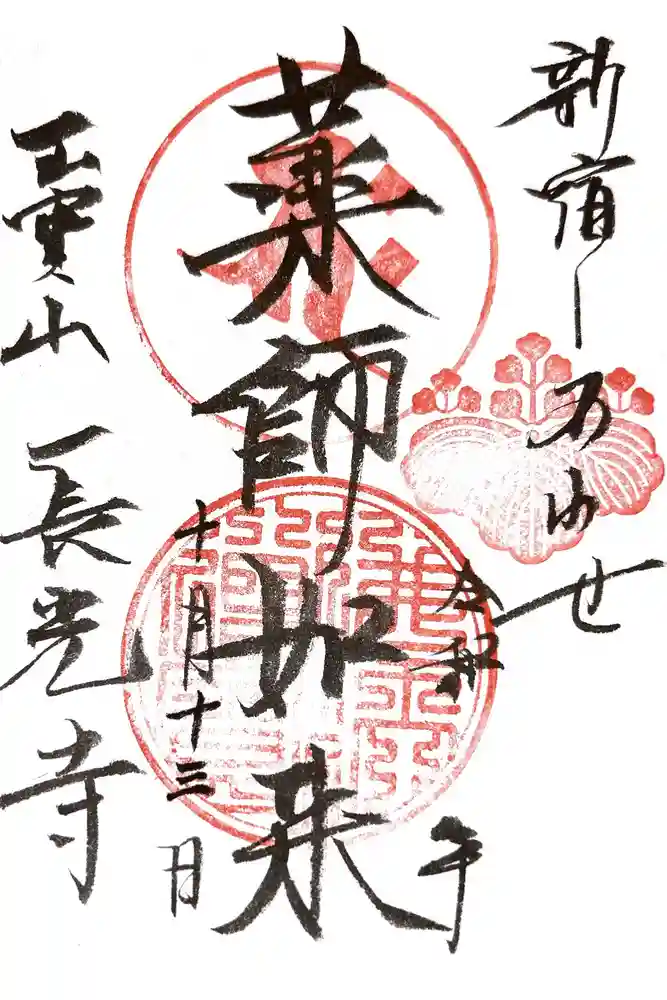 新宿しあわせ
令和 年
薬師如来
十月十三日
玉寶山 長光寺